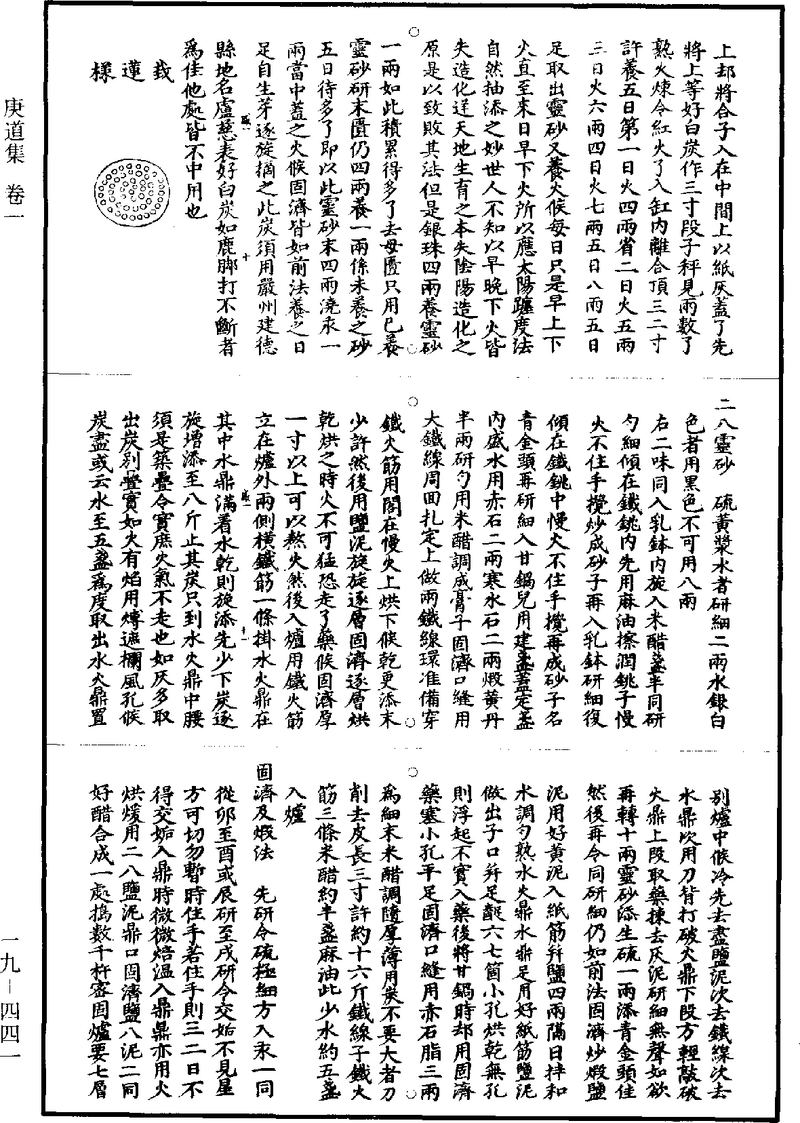 庚道集 卷一
一九–四四一
上却將合子入在中間上以紙灰蓋了先
將上等好白炭作三寸段子秤見兩數了
熟火煉令紅火了入缸內離合頂三二寸
許養五日第一日火四兩省二日火五兩
三日火六兩四日火七兩五日八兩五日
足取出靈砂又養火候每日只是早上下
火直至來日早下火所以應太陽躔度法
自然抽添之妙世人不知以早晚下火皆
失造化逆天地生育之本失陰陽造化之
原是以致敗其法但是銀珠四兩養靈砂
一兩如此積累得多了去母匱只用巳養
靈砂研末匱仍四兩養一兩係未養之砂
五日待多了即以此靈砂末四兩澆汞一
兩當中蓋之火候固濟皆如前法養之日
足自生芽逐旋摘之此炭須用嚴州建德
縣地名盧慈表好白炭如鹿脚打不斷者
為佳他處皆不中用也
栽蓮樣
二八靈砂 硫黃漿水者研細二兩水銀白
色者用黑色不可用八兩
右二味同入乳鉢內旋入米醋盞半同研
勺細傾在鐵銚內先用麻油擦潤銚子慢
火不住手攪炒成砂子再入乳鉢研細復
傾在鐵銚中慢火不住手攪再成砂子名
青金頭再研細入甘鍋兒用建盞蓋定盞
內盛水用赤石二兩寒水石二兩煅黃丹
半兩研勺用米醋調成膏子固濟口縫用
大鐵線周回扎定上做兩鐵線環准備穿
鐵火筋用閣在慢火上烘下候乾更添末
少許然後用鹽泥旋旋逐層固濟逐層烘
乾烘之時火不可猛恐走了藥候固濟厚
一寸以上可以熬火然後入爐用鐵火筋
立在爐外兩側橫鐵筋一條掛水火鼎在
其中水鼎滿着水乾則旋添先少下炭逐
旋增添至八斤止其炭只到水火鼎中腰
須是築疊令實庶火氣不走也如灰多取
出炭別疊實如火有焰用塼遮攔風孔候
炭盡或云水至五盞為度取出水火鼎置
別爐中候冷先去盡鹽泥次去鐵線次去
水鼎次用刀背打破火鼎下段方輕敲破
火鼎上段取藥揀去灰泥研細無聲如欲
再轉十兩靈砂添生硫一兩添青金頭佳
然後再令同研細仍如前法固濟炒煅鹽
泥用好黃泥入紙筋并鹽四兩隔日拌和
水調勺熟水火鼎水鼎足用好紙筋鹽泥
做出子口并足䚡六七箇小孔烘乾無孔
則浮起不實入藥後將甘鍋時却用固濟
藥塞小孔平足固濟口縫用赤石脂三兩
為細末米醋調隨厚薄用炭不要大者刀
削去皮長三寸許約十六斤鐵線子鐵火
筋三條米醋約半盞麻油此少水約五盞
入爐
固濟及煅法 先研令硫極細方入汞一同
從卯至酉或辰研至戌研令交姤不見星
方可切勿暫時住手若住手則三二日不
得交姤入鼎時微微焙溫入鼎鼎亦用火
烘煖用二八鹽泥鼎口固濟鹽八泥二同
好醋合成一處搗數千杵密固爐要七層